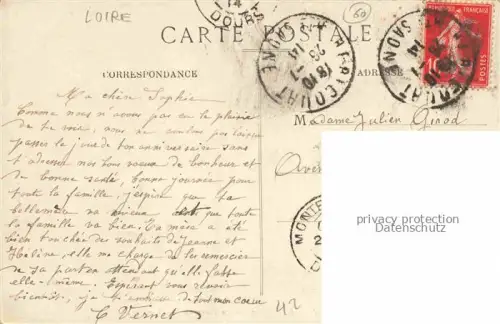 LOIRE
60
CARTE POSTALE
CORRESPONDANCE
ADRESSE
10
POSTES
Ma chère Sophie
Comme nous n'avons pas eu le plaisir
de te voir, nous ne voulons pas laisser
passer le jour de ton anniversaire sans
t'adresser nos bons voeux de bonheur et
de bonne santé, bonne journée pour
toute la famille, j'espère que ta
bellemère va mieux et que toute
la famille va bien. Ta mère a été
bien touchée des souhaits de Jeanne et
Hélène, elle me charge de les remercier
de sa part en attendant qu'elle fasse
elle-même. Espérant vous revoir
bientôt, de tout mon coeur
C Vernet
Madame Julien Girod
privacy protection
Datenschutz
42